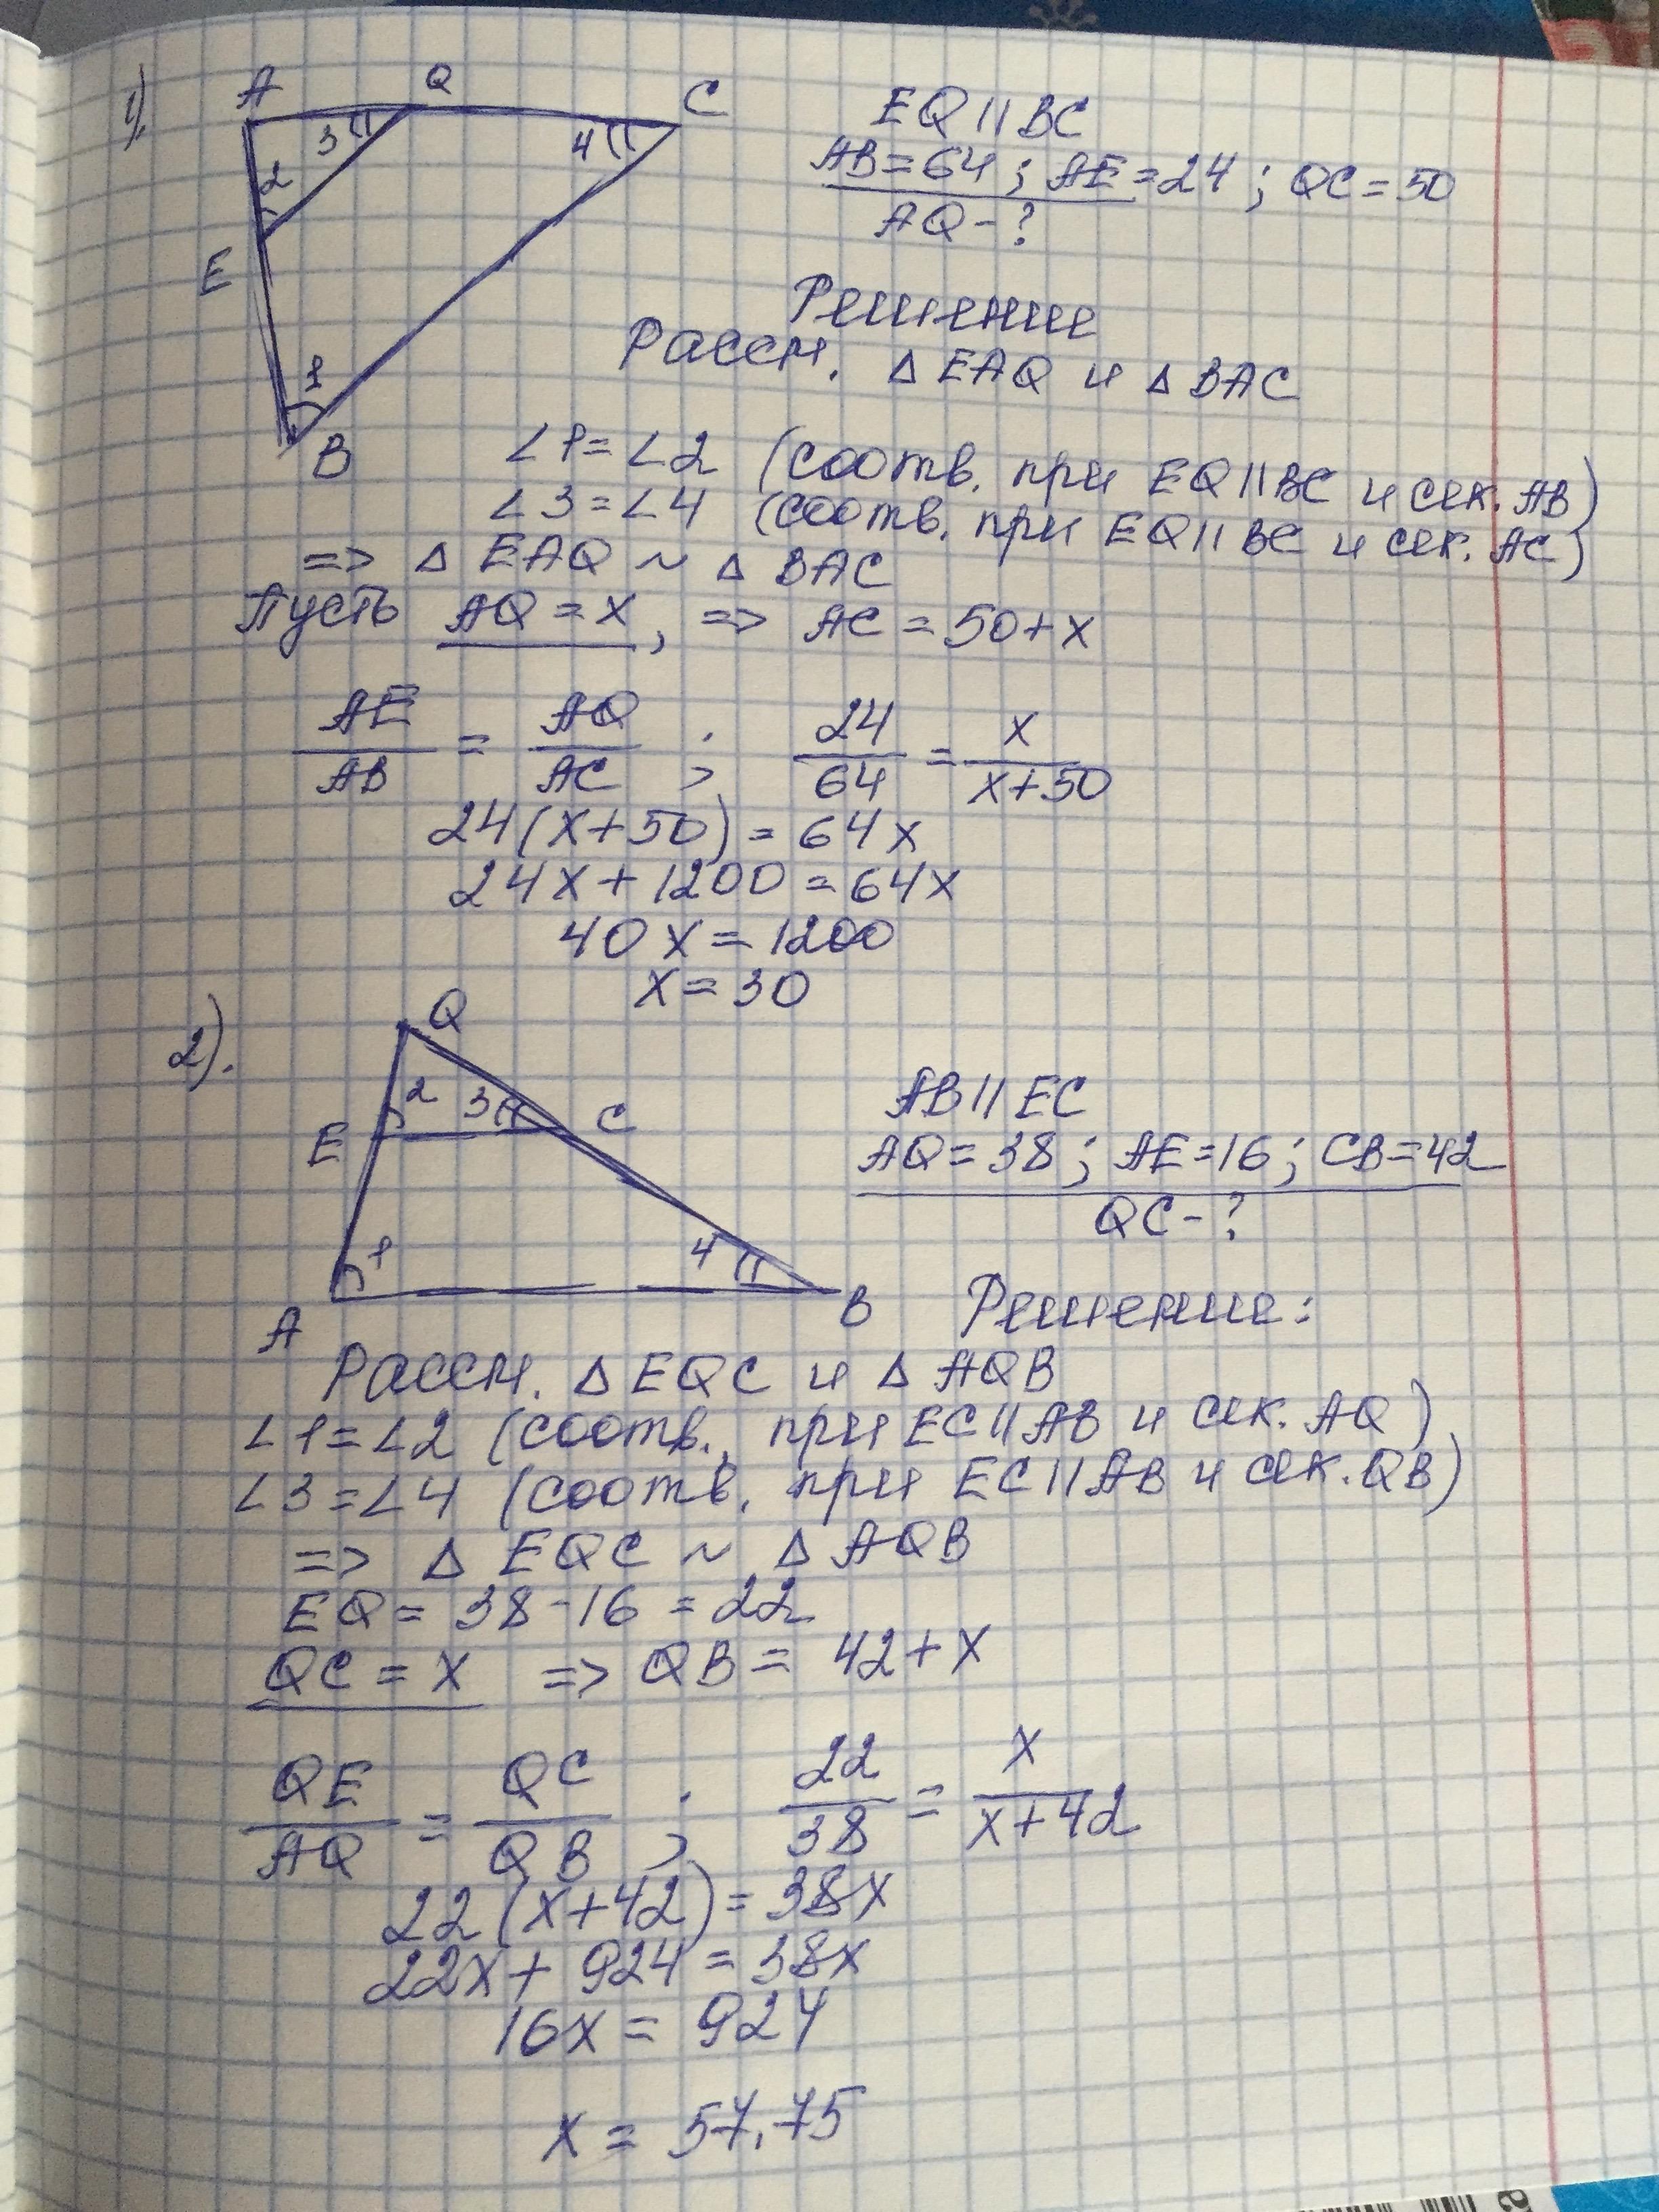 1).
A Q C
3 4
2
E
1
B
EQ || BC
AB = 64 ; AE = 24 ; QC = 50
AQ - ?
Решение
Рассм. △ EAQ и △ BAC
∠1 = ∠2 (соотв. при EQ || BC и сек. AB)
∠3 = ∠4 (соотв. при EQ || BC и сек. AC)
=> △ EAQ ~ △ BAC
Пусть AQ = x, => AC = 50 + x
AE/AB = AQ/AC ; 24/64 = x/x+50
24(x+50) = 64x
24x + 1200 = 64x
40x = 1200
x = 30
2).
Q
2 3
E C
1 4
A B
AB || EC
AQ = 38 ; AE = 16 ; CB = 42
QC - ?
Решение:
Рассм. △ EQC и △ AQB
∠1 = ∠2 (соотв., при EC || AB и сек. AQ)
∠3 = ∠4 (соотв. при EC || AB и сек. QB)
=> △ EQC ~ △ AQB
EQ = 38 - 16 = 22
QC = x => QB = 42 + x
QE/AQ = QC/QB ; 22/38 = x/x+42
22(x+42) = 38x
22x + 924 = 38x
16x = 924
x = 57,75